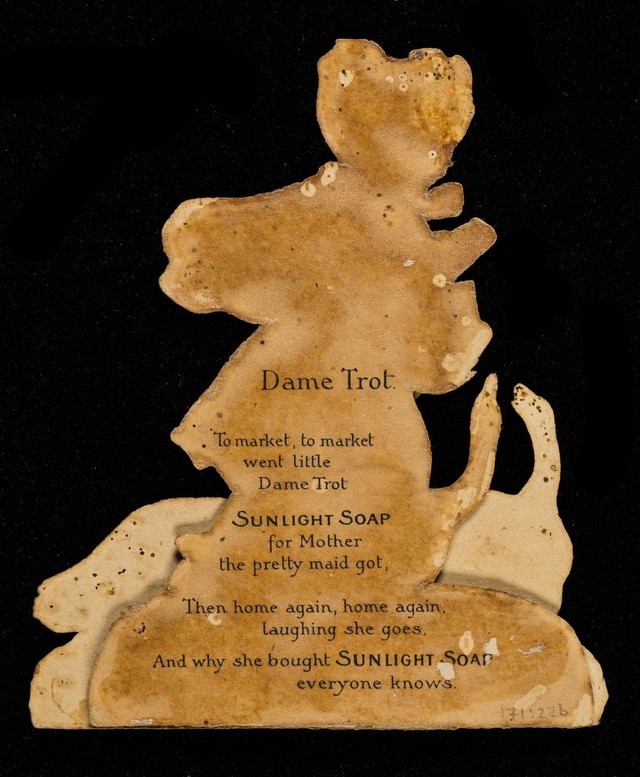 Dame Trot.
To market, to market
went little
Dame Trot
SUNLIGHT SOAP
for Mother
the pretty maid got,
Then home again, home again,
laughing she goes,
And why she bought SUNLIGHT SOAP
everyone knows.